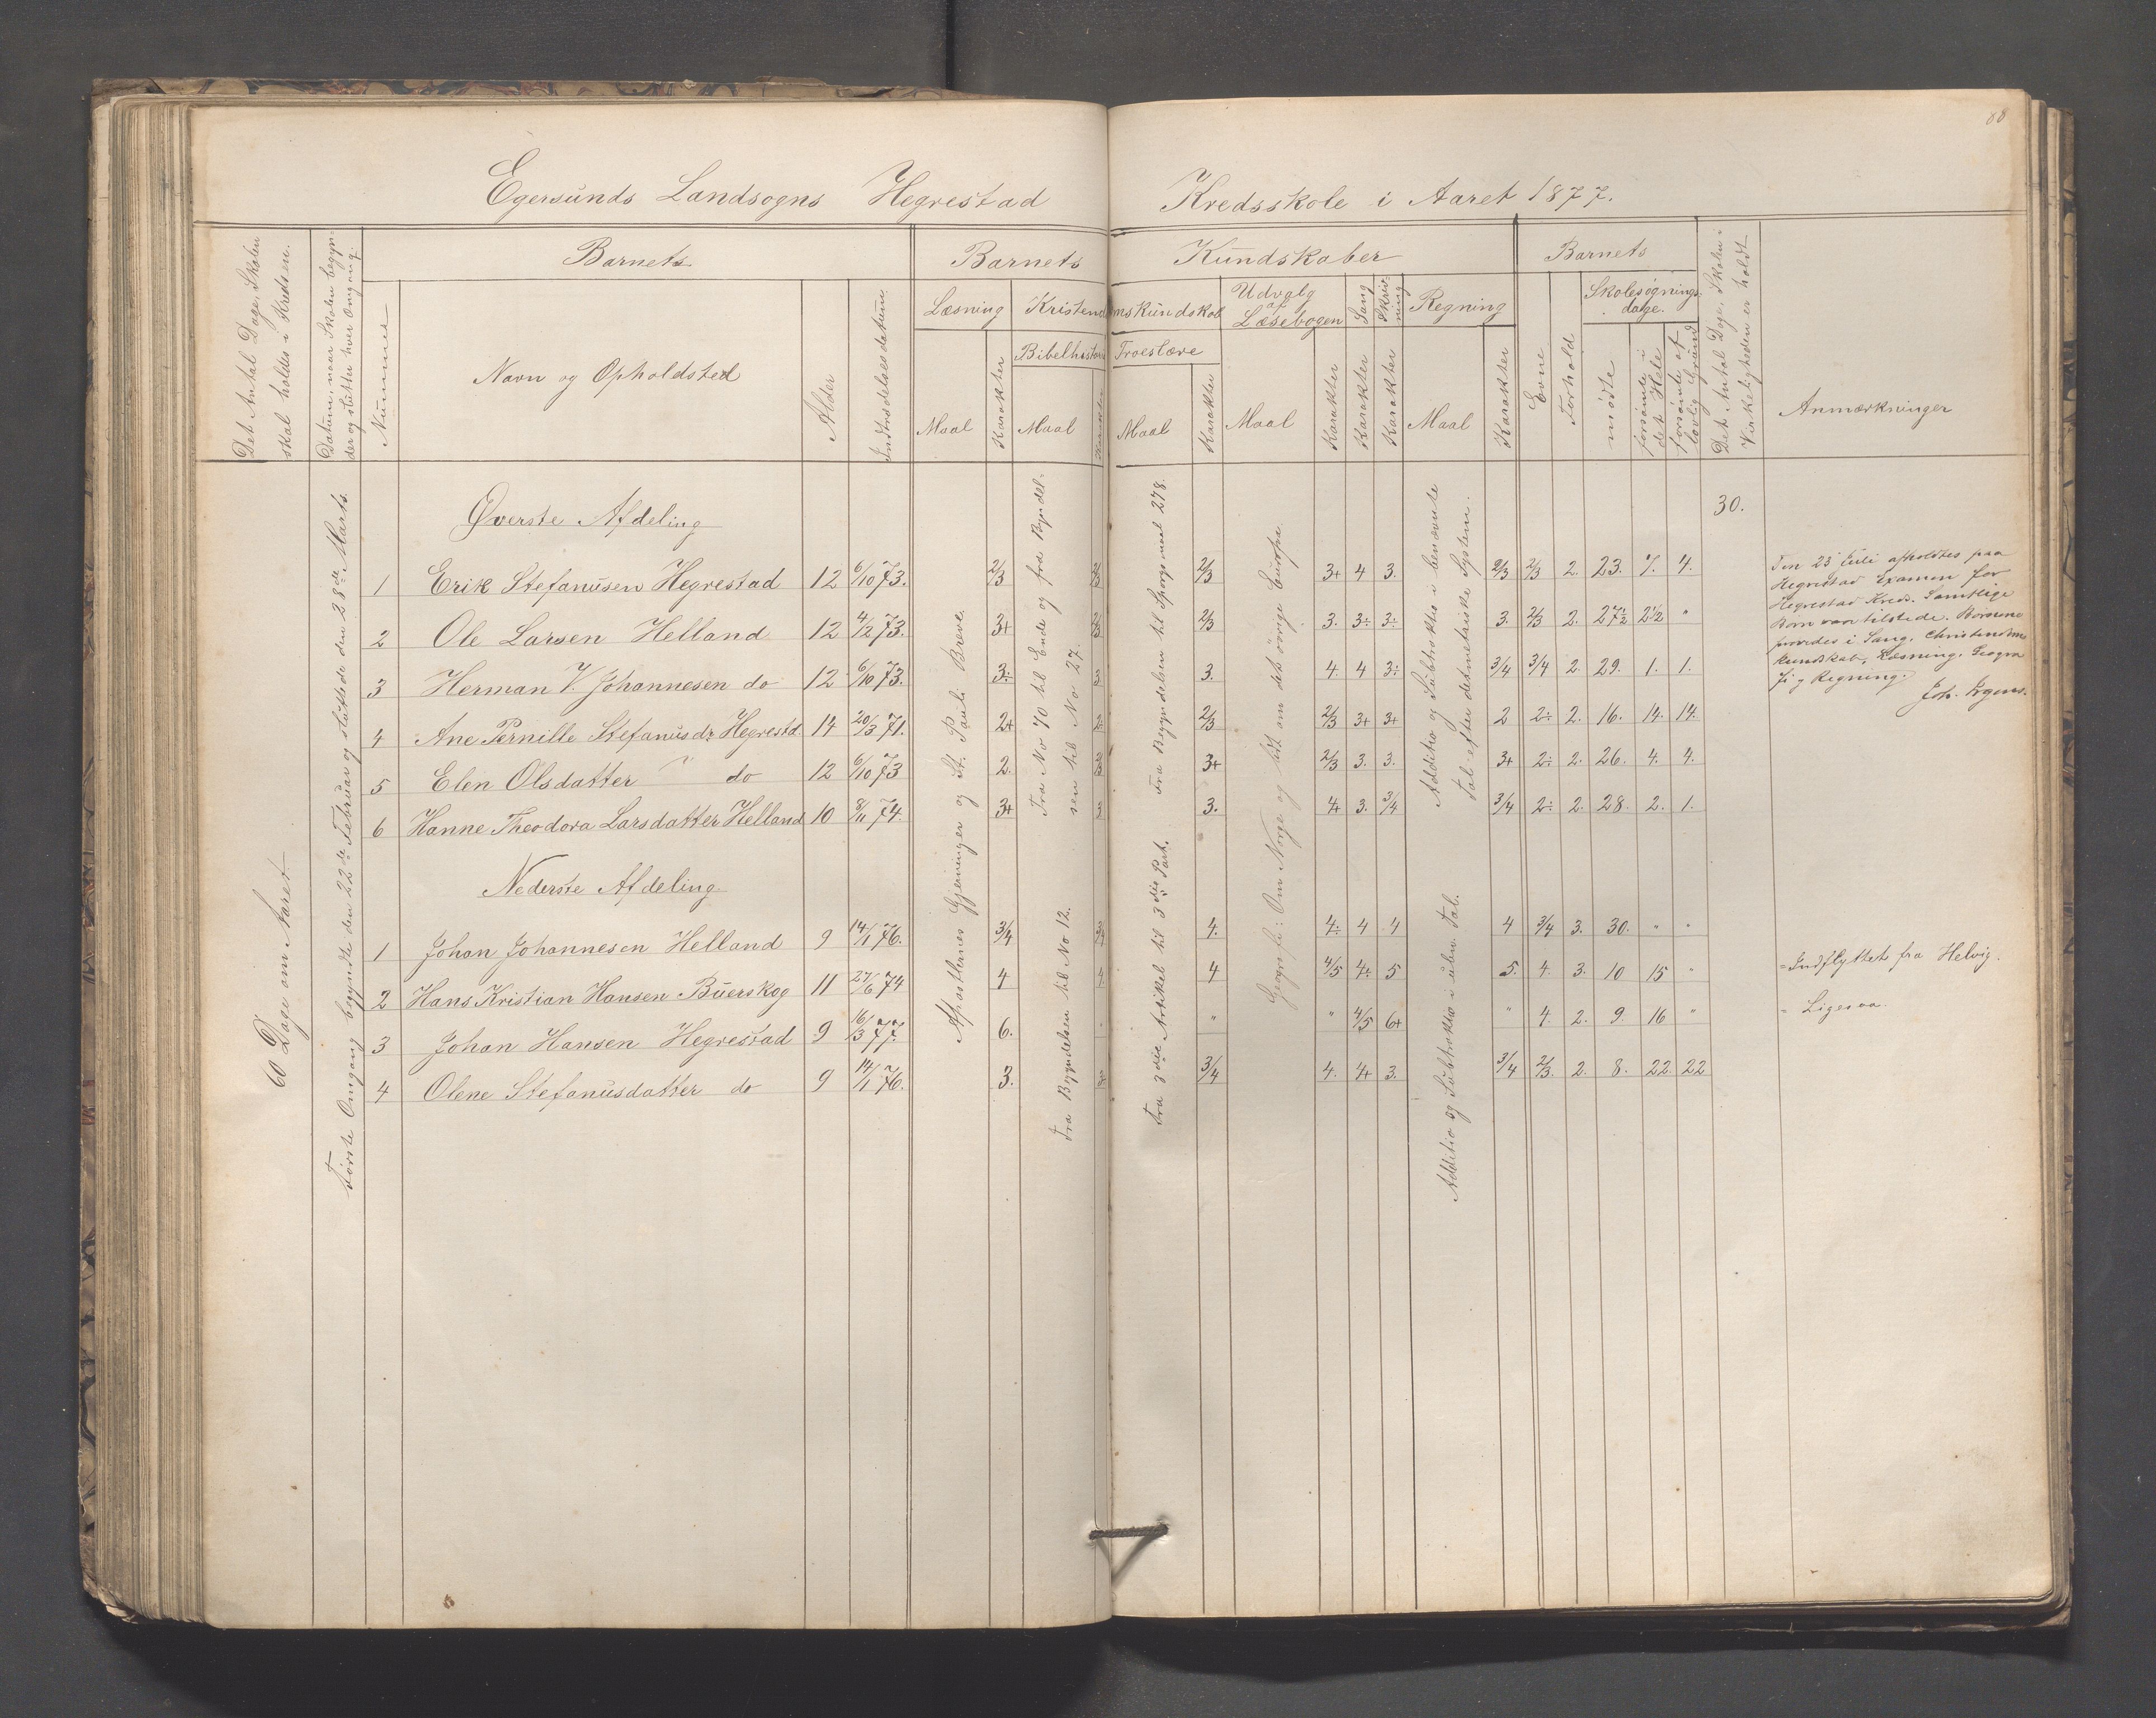 88
Egersunds Landsogns Hegrestad Kredsskole i Aaret 1877.
Det Antal Dage, Skolen skal holdes i Kredsen.
Datum, naar Skolen begynder og slutter hver Omgang.
Barnets
Nummer
Navn og Opholdsted
Alder
Indtrædelsesdatum
Barnets Kundskaber
Læsning
Maal
Karakter
Kristendomskundskab
Bibelhistorie
Maal
Karakter
Troeslære
Maal
Karakter
Udvalg af Læsebogen
Maal
Karakter
Sang
Karakter
Skrivning
Karakter
Regning
Maal
Karakter
Barnets
Evne
Forhold
Skolesøgningsdage.
mödte
forsömte i det Hele
forsömte af lovlig Grund
Det Antal Dage, Skolen i Virkeligheden er holdt
Anmærkninger
60 Dage om Aaret
Første Omgang begyndte den 22de Februar og sluttede den 28de Marts.
Apostlernes Gjerninger og St. Pauli Breve.
Fra No 70 til Ende og fra Begyndelsen til No 27.
Fra Begyndelsen til Spørgsmaal 278.
Geografi: Om Norge og lidt om det øvrige Europa
Additio og Subtraktio i benævnte Tal efter detmetriske System.
30.
Øverste Afdeling
1 Erik Stefanusen Hegrestad 12 6/10 73. 2/3 2/3 2/3 3+ 4 3. 2/3 2/3 2. 23. 7. 4.
2 Ole Larsen Helland 12 4/2 73. 3+ 2/3 2/3 3. 3÷ 3÷ 3. 2/3 2. 27½ 2½ "
3 Herman V. Johannesen do 12 6/10 73. 3÷ 3 3. 4. 4 3÷ 3/4 3/4 2. 29. 1. 1.
4 Ane Pernille Stefanusdr Hegrestd. 14 20/3 71. 2+ 2. 2/3 2/3 3+ 3+ 2 2÷ 2. 16. 14. 14.
5 Elen Olsdatter do 12 6/10 73 2. 3+ 2/3 3. 3. 3+ 2÷ 2. 26. 4. 4.
6 Hanne Theodora Larsdatter Helland 10 8/11 74. 3+ 3 3. 4+ 3. 3/4 3/4 2÷ 2. 28. 2. 1.
Den 23 Juli afholdtes paa
Hegrestad Examen for
Hegrestad Kreds. Samtlige
Børn var tilstede. Børnene
prøvedes i Sang, Christendoms
kundskab, Læsning, Geogra
fi og Regning.
Joh. Irgens.
Nederste Afdeling
Fra Begyndelsen til No 12.
Fra 3die Artikel til 3die Part.
Additio og Subtraktio i uben. Tal.
1 Johan Johannesen Helland 9 14/1 76. 3/4 3/4 4. 4÷ 4 4 4 3/4 3. 30. " "
2 Hans Kristian Hansen Buerskog 11 27/6 74 4 4. 4 4/5 4÷ 5 5. 4. 3. 10 15 " Indflyttet fra Helvig.
3 Johan Hansen Hegrestad 9 16/3 77. 6. " " " 4/5 6+ " 4. 2. 9. 16 " Ligesaa.
4 Olene Stefanusdatter do 9 14/1 76. 3. 3 3/4 4. 4+ 3. 3/4 2/3. 2. 8. 22. 22